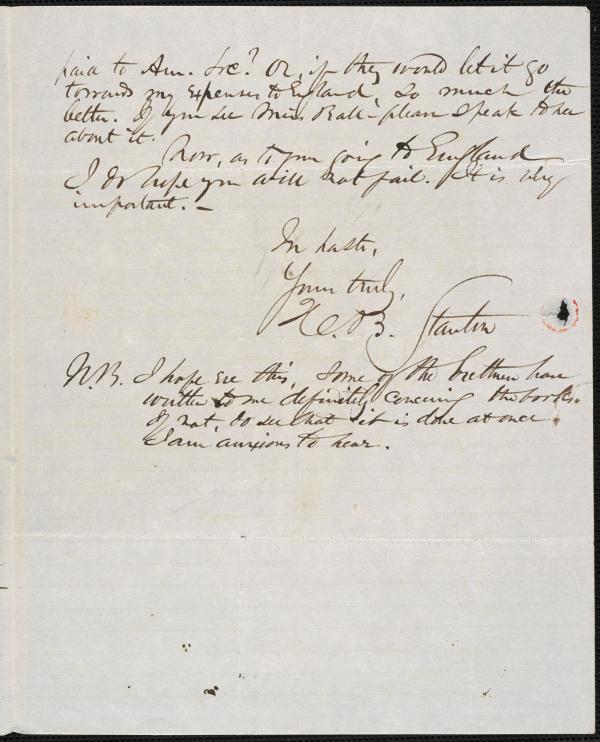 paid to Am. Soc? Or, if they would let it go
towards my expenses to England, so much the
better. If you see Miss Ball - please speak to her
about it.
Now, as to your going to England
I do hope you will not fail. It is very
important. -
In haste,
Yours truly,
H. B. Stanton
N.B. I hope ere this, some of the brethren have
written to me definitely concerning the books.
If not, do see that it is done at once.
I am anxious to hear.